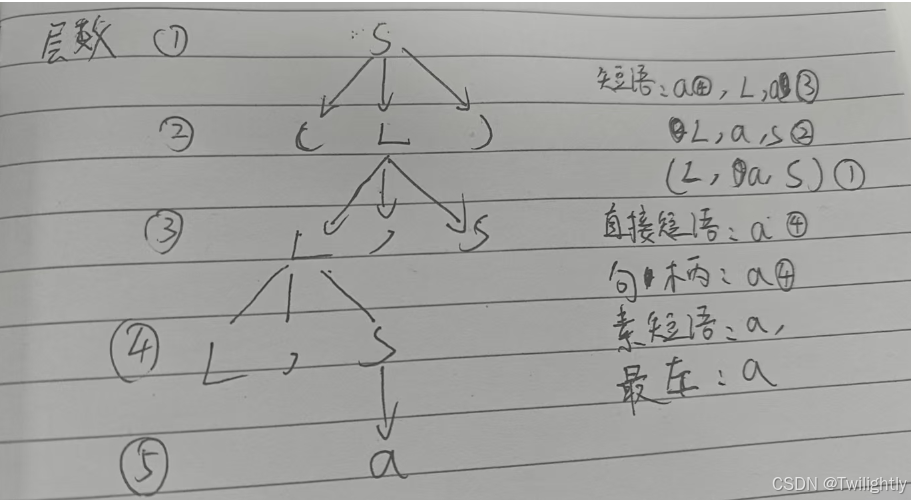 层数 ① S
② ( L )
③ L , S
④ L , S
⑤ a
短语：a④，L,a③
L,a,S②
(L,a,S)①
直接短语：a④
句柄：a④
素短语：a，
最左：a
CSDN @Twilightly